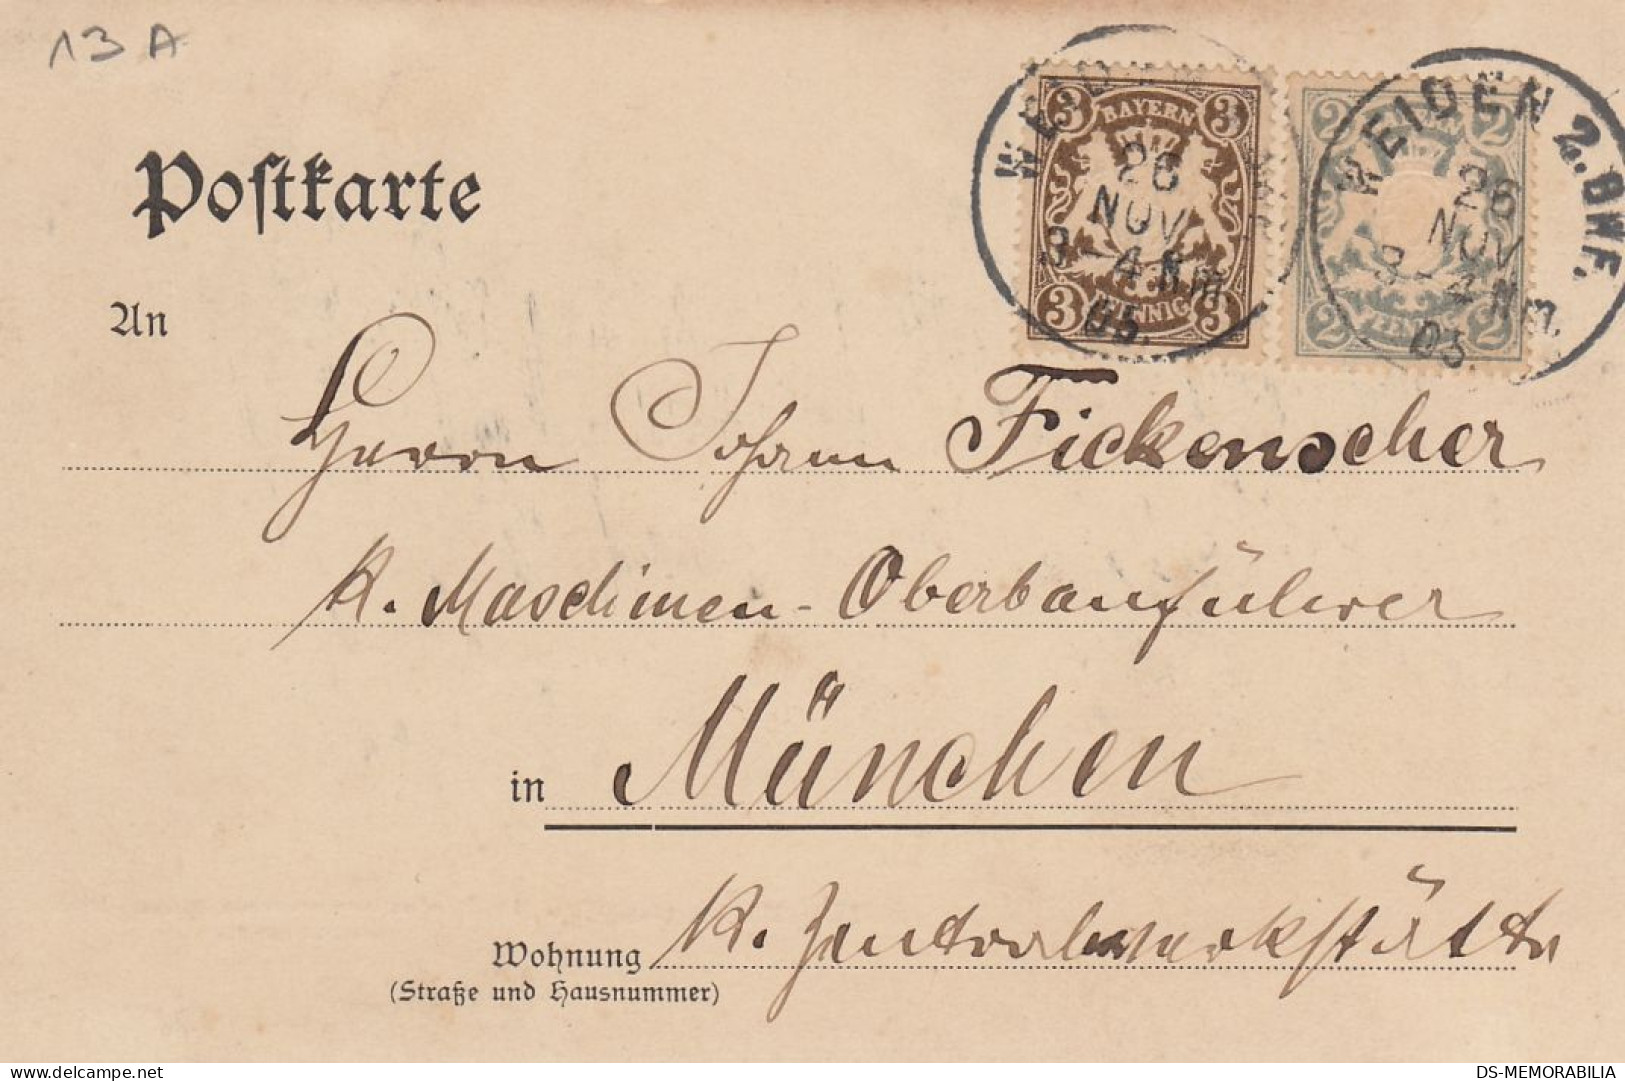 13 A
Postkarte
BAYERN
3 3
3 PFENNIG 3
2 2
2 PFENNIG 2
WEIDEN
26
NOV
3-4 Nm
05.
WEIDEN 2. BHF.
26
NOV
3-4 Nm.
05
An
Herrn Johann Fickenscher
K. Maschinen-Oberbauführer
in München
Wohnung K. Zentralwerkstätte
(Straße und Hausnummer)
delcampe.net
DS-MEMORABILIA